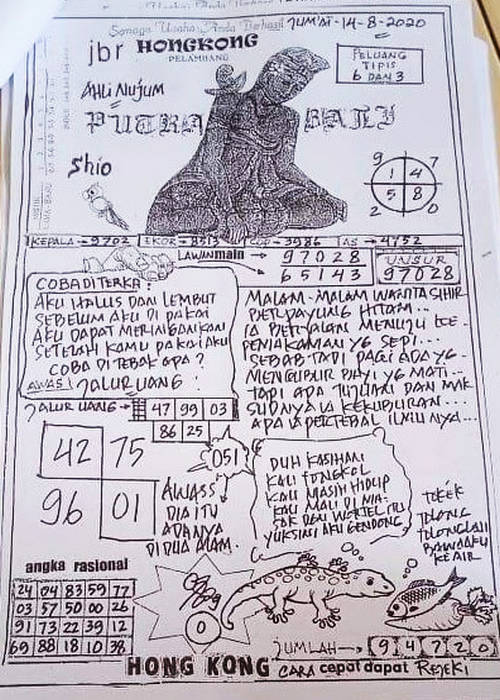 Semoga Usaha Anda Berhasil JUM'AT-14-8-2020
jbr HONGKONG
PELAMBANG
PELUANG
TIPIS
6 DAN 3
AHLI NUJUM
PUTRA BALI
Shio
9 7
1 4
5 8
2 0
KEPALA → 9702 EKOR → 8513 COP → 3986 AS → 4752
LAWAN main → 97028
65143
UNSUR
97028
COBA DITERKA:
AKU HALUS DAN LEMBUT
SEBELUM AKU DI PAKAI
AKU DAPAT MERINGANKAN
SETELAH KAMU PAKAI AKU
COBA DI TEBAK APA?
AWAS! JALUR UANG!
MALAM-MALAM WANITA SIHIR
BERPAYUNG HITAM...
IA BERJALAN MENUJU KE-
PEMAKAMAN YG SEPI...
SEBAB TADI PAGI ADA YG-
MENGUBUR BAYI YG MATI...
TAPI APA TUJUAN DAN MAK
SUDNYA IA KEKUBURAN...
APA IA PERTEBAL ILMU NYA...
JALUR UANG → 47 99 03
86 25
42 75
96 01
051
AWASS
DIA ITU
ADANYA
DI DUA ALAM.
DUH KASIHAN
KAU TONGKOL
KAU MASIH HIDUP
KAU MAU DI MA-
SAK DGN WORTEL ITU
YUK SINI AKU GENDONG
TOKEK
TOLONG
TOLONGLAH
BAWA AKU
KE AIR
angka rasional
24 04 83 59 77
03 57 50 00 26
91 73 22 39 12
69 88 18 10 38
0
JUMLAH → 9 4 7 2 0
HONG KONG CARA cepat dapat REJEKI